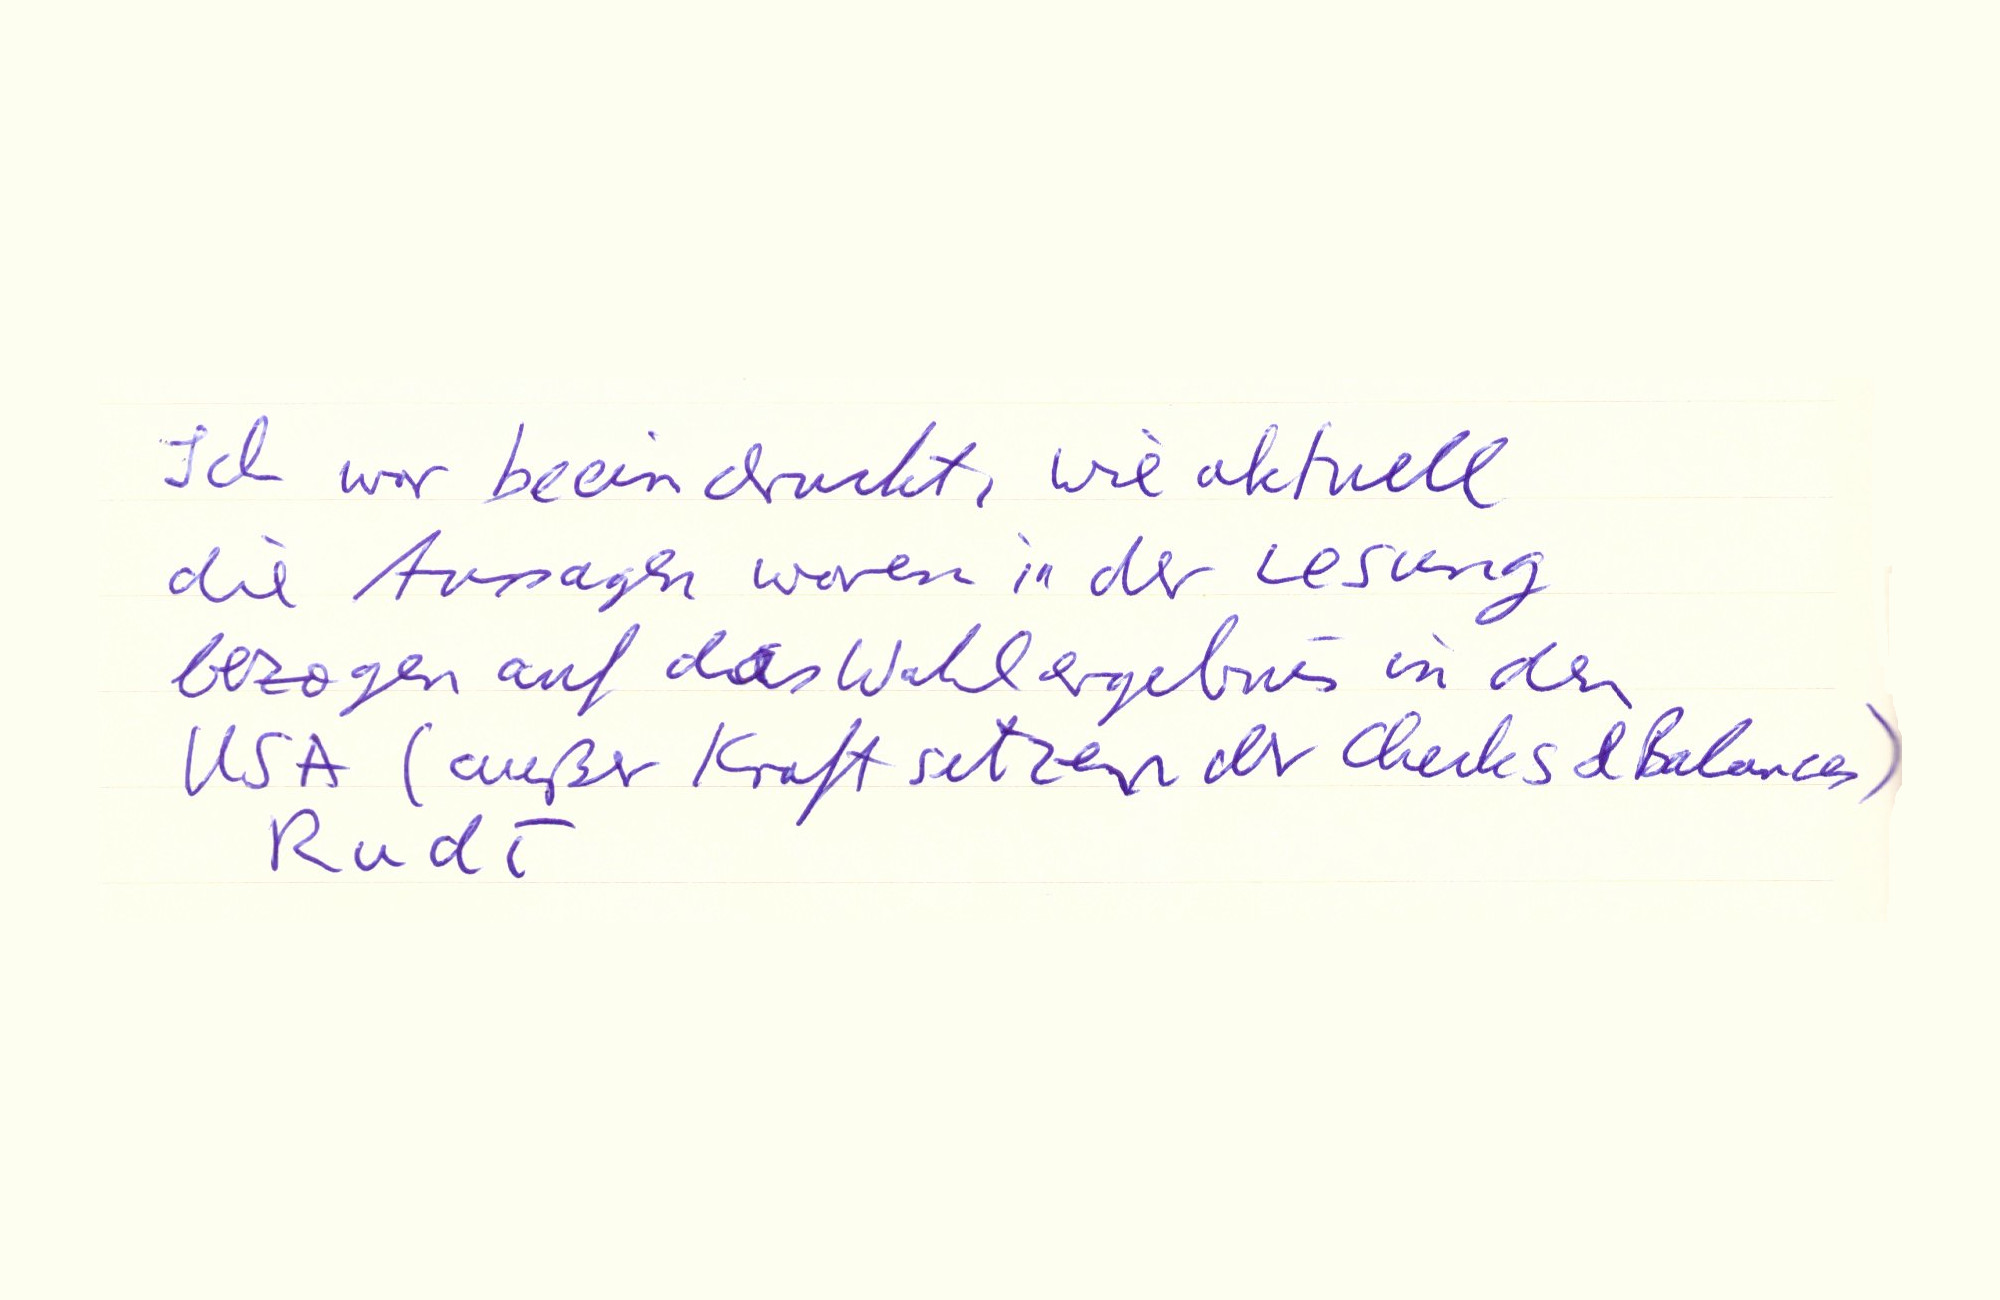 Ich war beeindruckt, wie aktuell
die Aussagen waren in der Lesung
bezogen auf das Wahlergebnis in den
USA (außer Kraft setzen der Checks & Balances)
Rudi